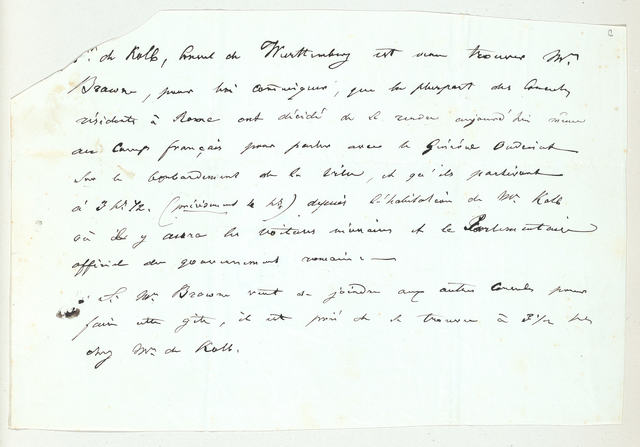 Mr. de Kolb, Consul de Wurttemberg est venu trouver Mr.
Browne, pour lui communiquer, que la plupart des Consuls
résidents à Rome ont décidé de se rendre aujourd'hui même
au Camp français pour parler avec le Général Oudinot
sur le bombardement de la Ville, et qu'ils partiront
à 3 h. ½. (précisément 4 h.) depuis l'habitation de Mr. Kolb
où il y aura les voitures nécessaires et le Parlementaire
officiel du gouvernement romain. —
Si Mr. Browne veut se joindre aux autres Consuls pour
faire cette , il est prié de se trouver à 3½ hes
chez Mr. de Kolb.